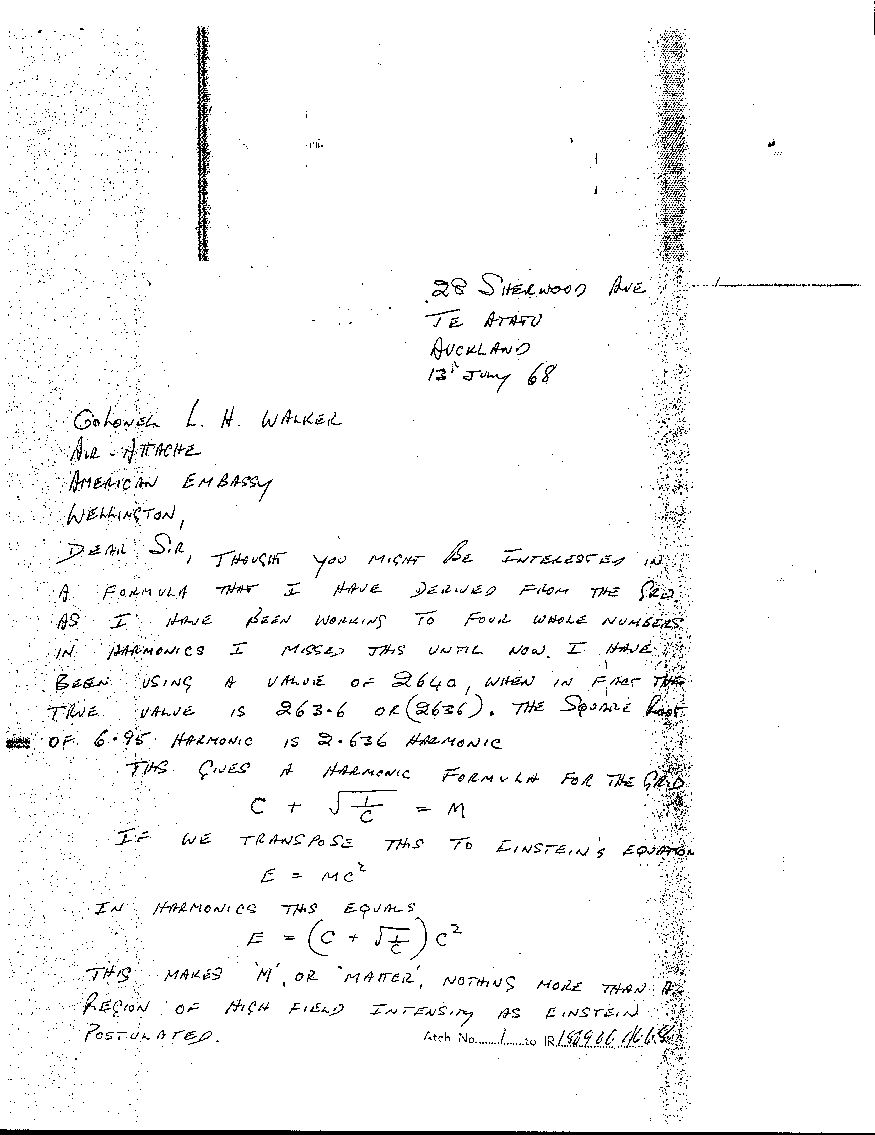 28 SHERWOOD AVE
TE ATATU
AUCKLAND
13th JULY 68
COLONEL L. H. WALKER
AIR-ATTACHE
AMERICAN EMBASSY
WELLINGTON,
DEAR SIR, THOUGHT YOU MIGHT BE INTERESTED IN
A FORMULA THAT I HAVE DERIVED FROM THE GRID
AS I HAVE BEEN WORKING TO FOUR WHOLE NUMBERS
IN HARMONICS I MISSED THIS UNTIL NOW. I HAVE
BEEN USING A VALUE OF 2640, WHEN IN FACT THE
TRUE VALUE IS 263.6 OR (2636). THE SQUARE ROOT
OF 6.95 HARMONIC IS 2.636 HARMONIC
THIS GIVES A HARMONIC FORMULA FOR THE GRID
C + √(1/C) = M
IF WE TRANSPOSE THIS TO EINSTEIN'S EQUATION
E = MC²
IN HARMONICS THIS EQUALS
E = (C + √(1/C)) C²
THIS MAKES 'M', OR 'MATTER', NOTHING MORE THAN A
REGION OF HIGH FIELD INTENSITY AS EINSTEIN
POSTULATED.
Atch No. 1 to IR